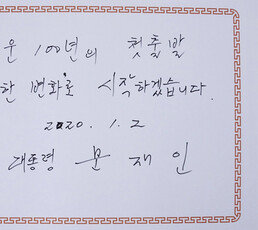 운 100년의 첫출발
한 변화로 시작하겠습니다.
2020. 1. 2
대통령 문재인